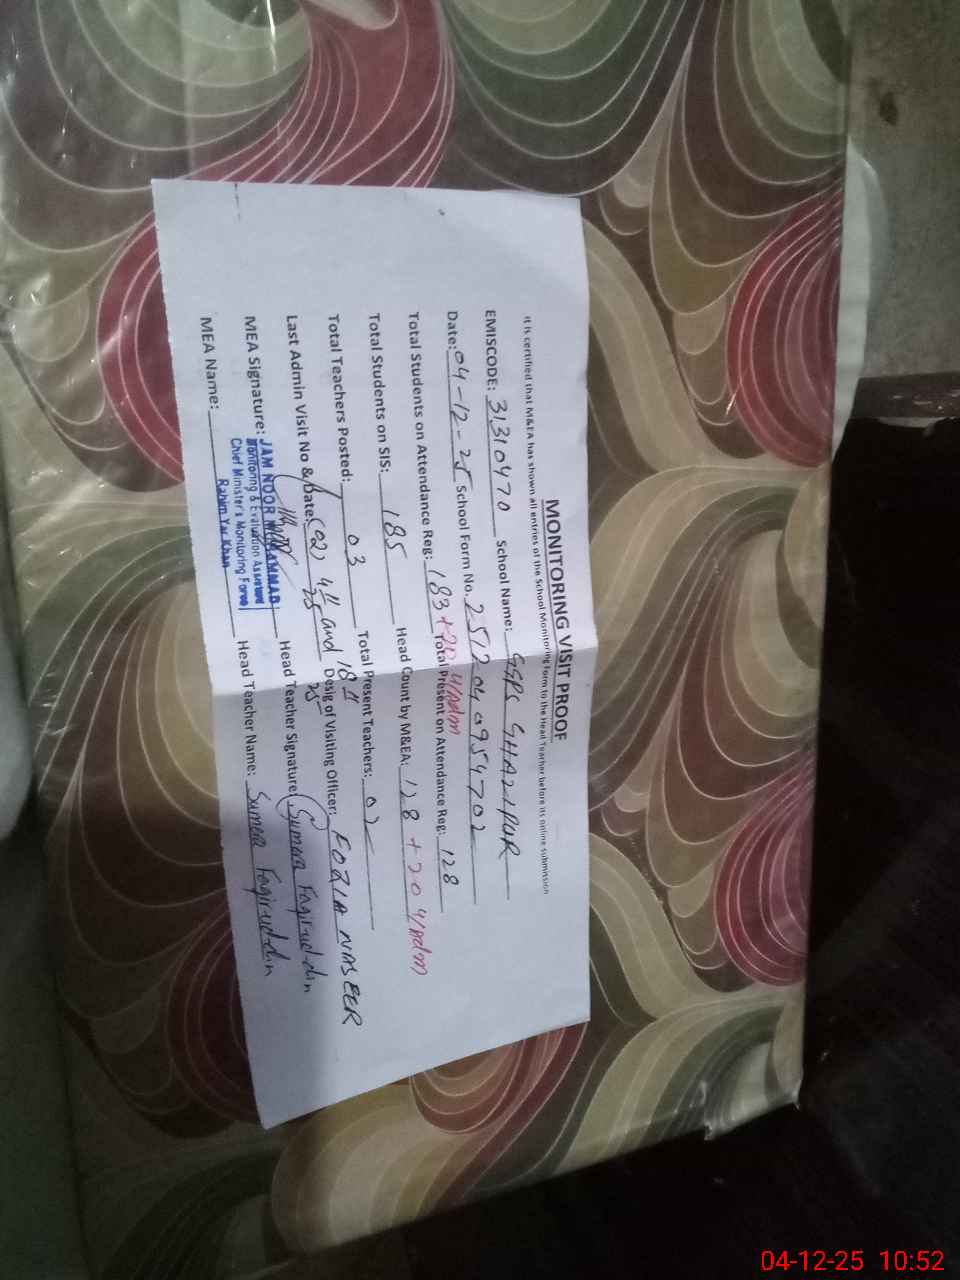 MONITORING VISIT PROOF
It is certified that M&EA has shown all entries of the School Monitoring Form to the Head Teacher before its online submission
EMISCODE: 31310470 School Name: GGPS GHAZIPUR
Date: 04-12-25 School Form No. 2512040954702
Total Students on Attendance Reg: 183+20 U/Adm Total Present on Attendance Reg: 128
Total Students on SIS: 185 Head Count by M&EA: 128 + 20 U/Adm
Total Teachers Posted: 03 Total Present Teachers: 02
Last Admin Visit No & Date: (02) 4-11-25 and 18-11-25 Desig of Visiting Officer: FOZIA NASEER
MEA Signature: Head Teacher Signature: Sumera Faqir-ud-din
JAM NOOR MUHAMMAD
Monitoring & Evaluation Assistant
Chief Minister's Monitoring Force
Rahim Yar Khan
MEA Name: Head Teacher Name: Sumera Faqir-ud-din
04-12-25 10:52